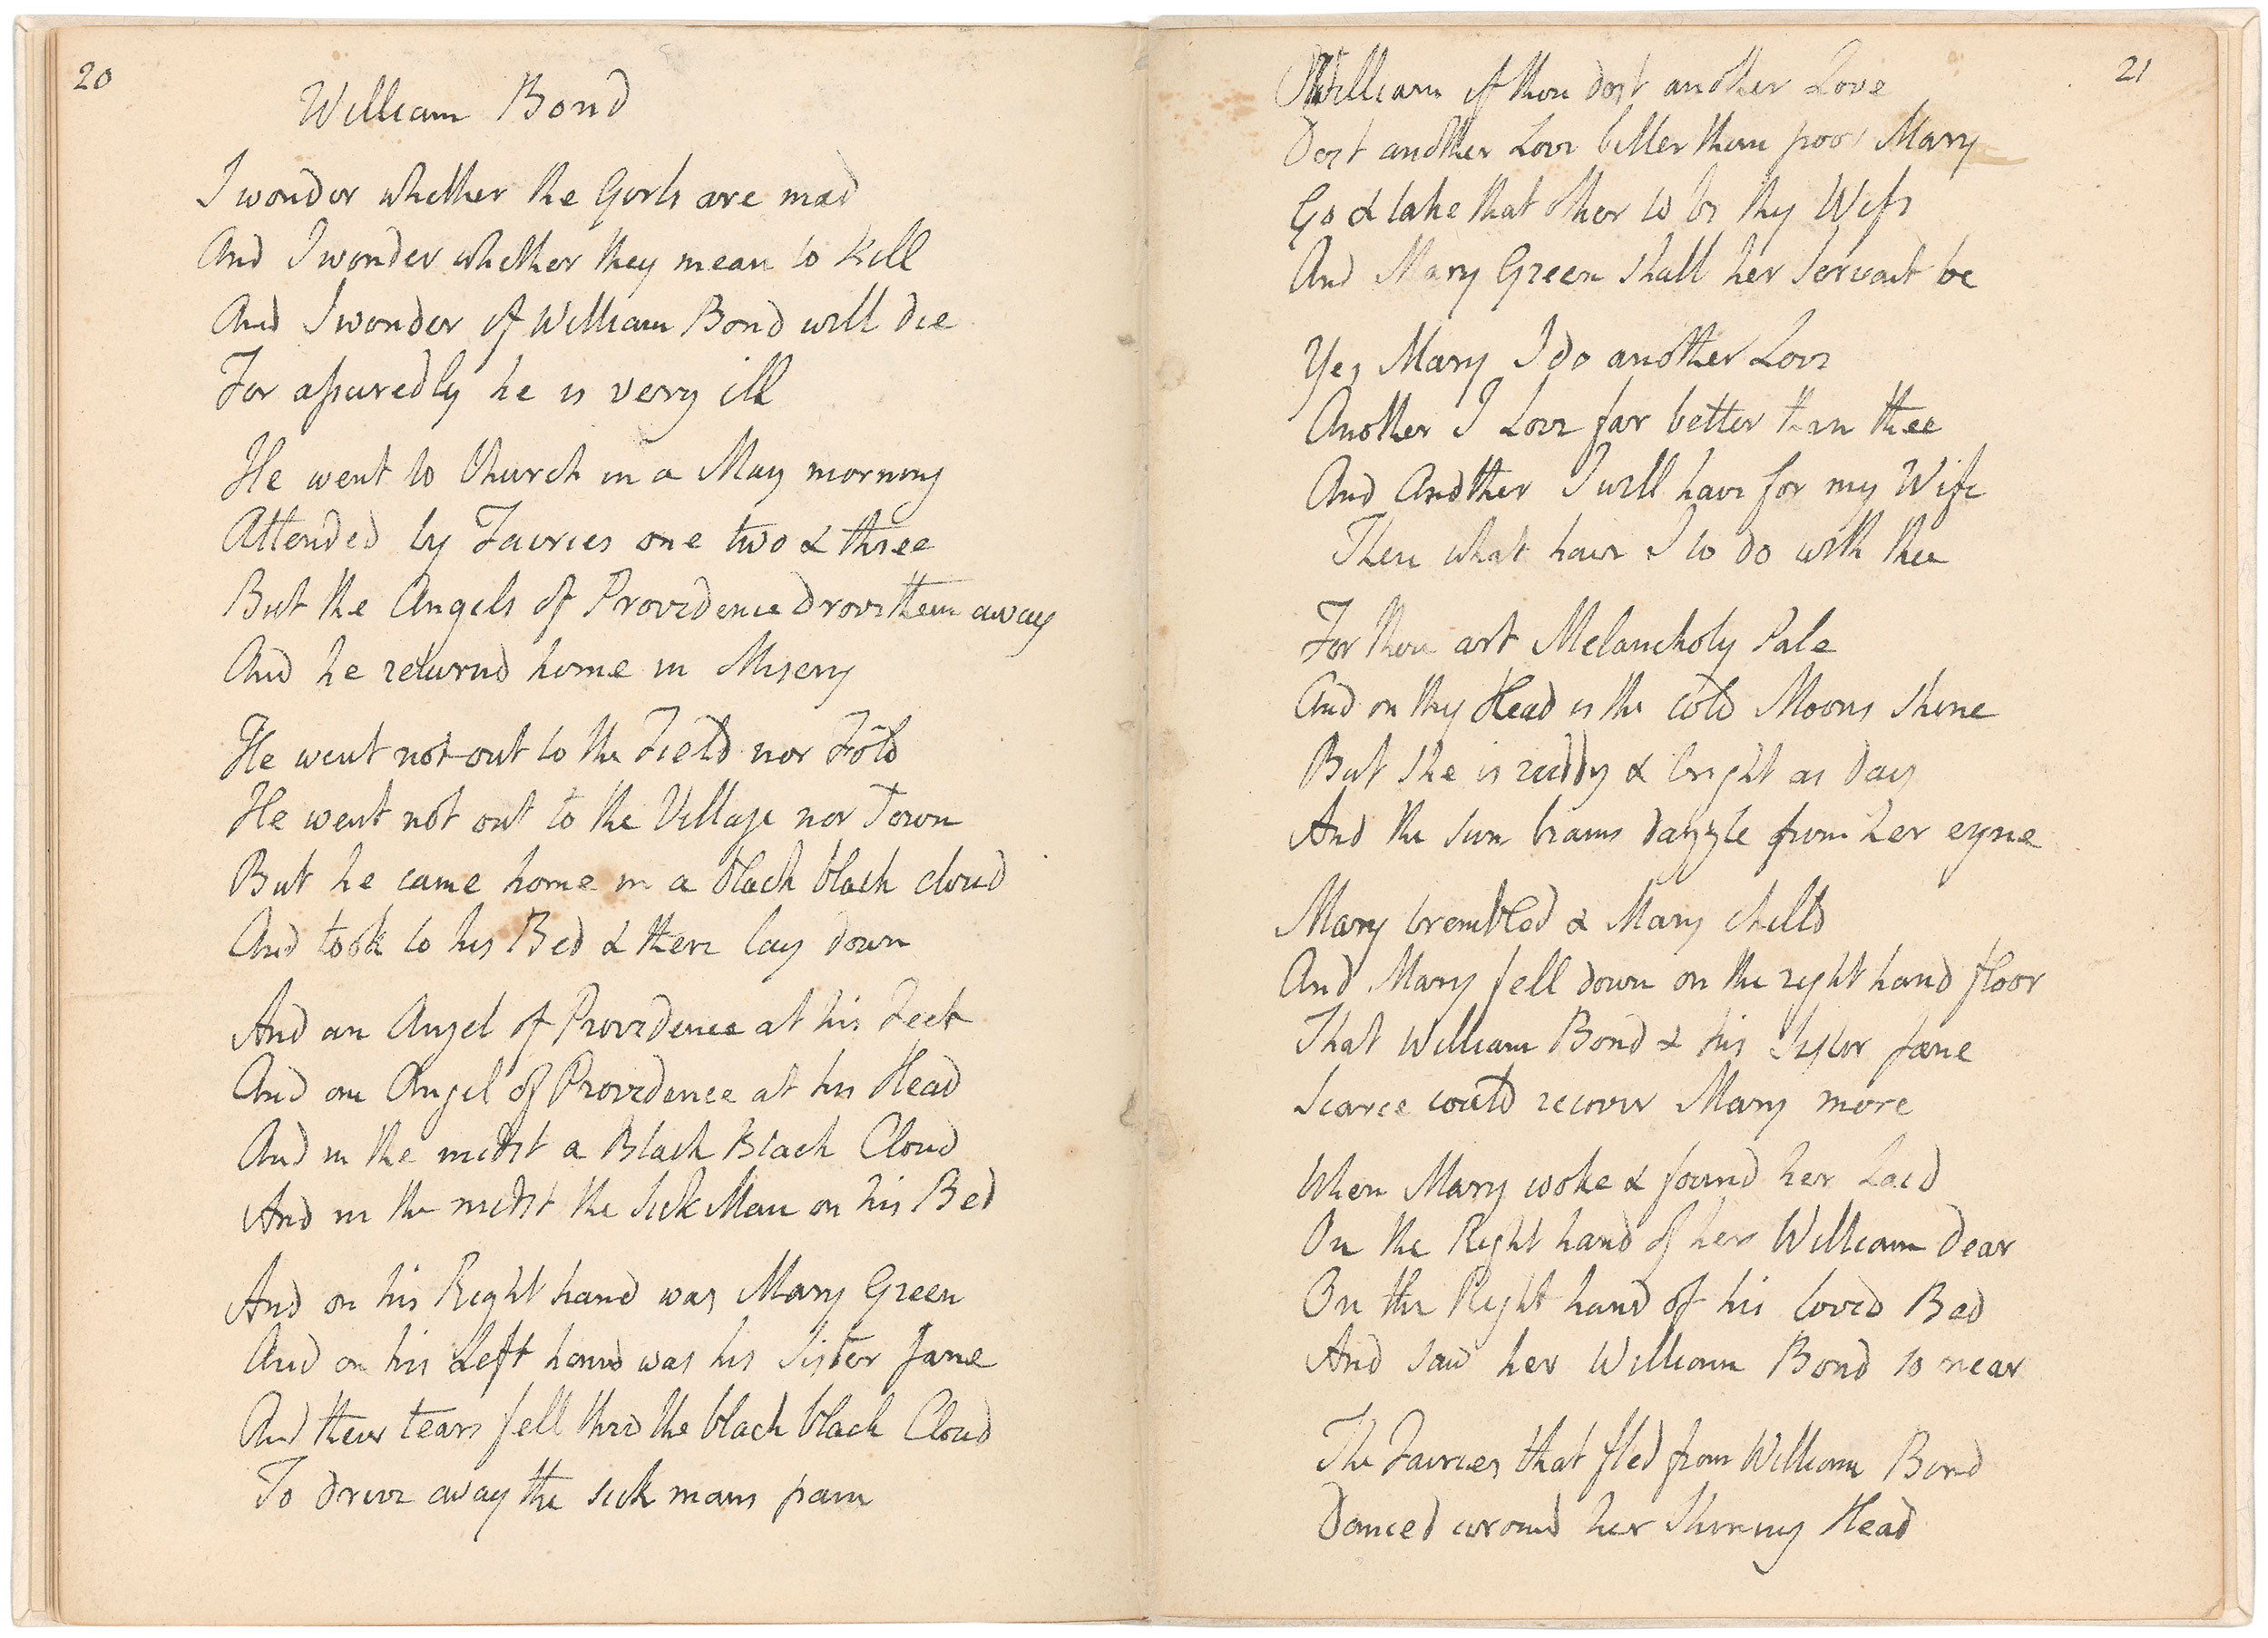 20
William Bond
I wonder whether the Girls are mad
And I wonder whether they mean to kill
And I wonder if William Bond will die
For assuredly he is very ill
He went to Church in a May morning
Attended by Fairies one two & three
But the Angels of Providence drove them away
And he returnd home in Misery
He went not out to the Field nor Fold
He went not out to the Village nor Town
But he came home in a black black cloud
And took to his Bed & there lay down
And an Angel of Providence at his Feet
And an Angel of Providence at his Head
And in the midst a Black Black Cloud
And in the midst the Sick Man on his Bed
And on his Right hand was Mary Green
And on his Left hand was his Sister Jane
And their tears fell thro the black black Cloud
To drive away the sick mans pain
21
O William if thou dost another Love
Dost another Love better than poor Mary
Go & take that other to be thy Wife
And Mary Green shall her Servant be
Yes Mary I do another Love
Another I Love far better than thee
And Another I will have for my Wife
Then what have I to do with thee
For thou art Melancholy Pale
And on thy Head is the cold Moons shine
But she is ruddy & bright as day
And the sun beams dazzle from her eyne
Mary trembled & Mary chilld
And Mary fell down on the right hand floor
That William Bond & his Sister Jane
Scarce could recover Mary more
When Mary woke & found her Laid
On the Right hand of her William dear
On the Right hand of his loved Bed
And saw her William Bond so near
The Fairies that fled from William Bond
Danced around her Shining Head